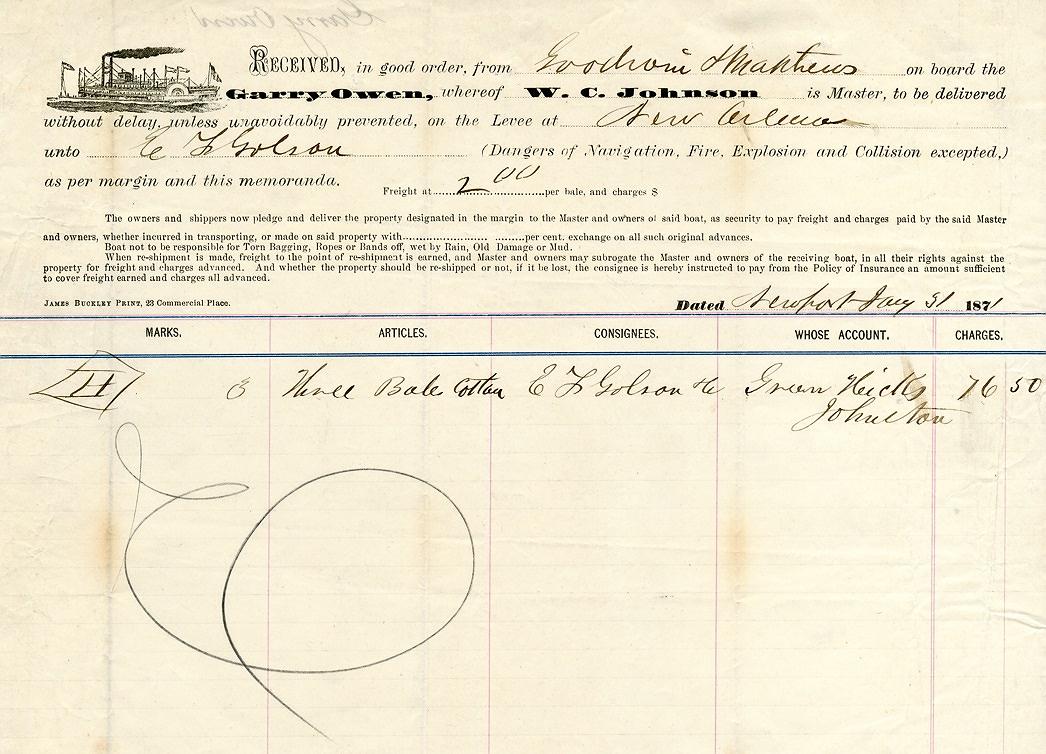 RECEIVED, in good order, from Goodwin & Matthews on board the
Garry Owen, whereof W. C. Johnson is Master, to be delivered
without delay, unless unavoidably prevented, on the Levee at New Orleans
unto E F Golson (Dangers of Navigation, Fire, Explosion and Collision excepted,)
as per margin and this memoranda. Freight at 2 00 per bale, and charges $
The owners and shippers now pledge and deliver the property designated in the margin to the Master and owners of said boat, as security to pay freight and charges paid by the said Master
and owners, whether incurred in transporting, or made on said property with per cent. exchange on all such original advances.
Boat not to be responsible for Torn Bagging, Ropes or Bands off, wet by Rain, Old Damage or Mud.
When re-shipment is made, freight to the point of re-shipment is earned, and Master and owners may subrogate the Master and owners of the receiving boat, in all their rights against the
property for freight and charges advanced. And whether the property should be re-shipped or not, if it be lost, the consignee is hereby instructed to pay from the Policy of Insurance an amount sufficient
to cover freight earned and charges all advanced.
JAMES BUCKLEY PRINT, 23 Commercial Place. Dated Newport Jany 31 1871
MARKS. ARTICLES. CONSIGNEES. WHOSE ACCOUNT. CHARGES.
H 3 Three Bales Cotton E F Golson &c Green Hicks 76 50
Johnston